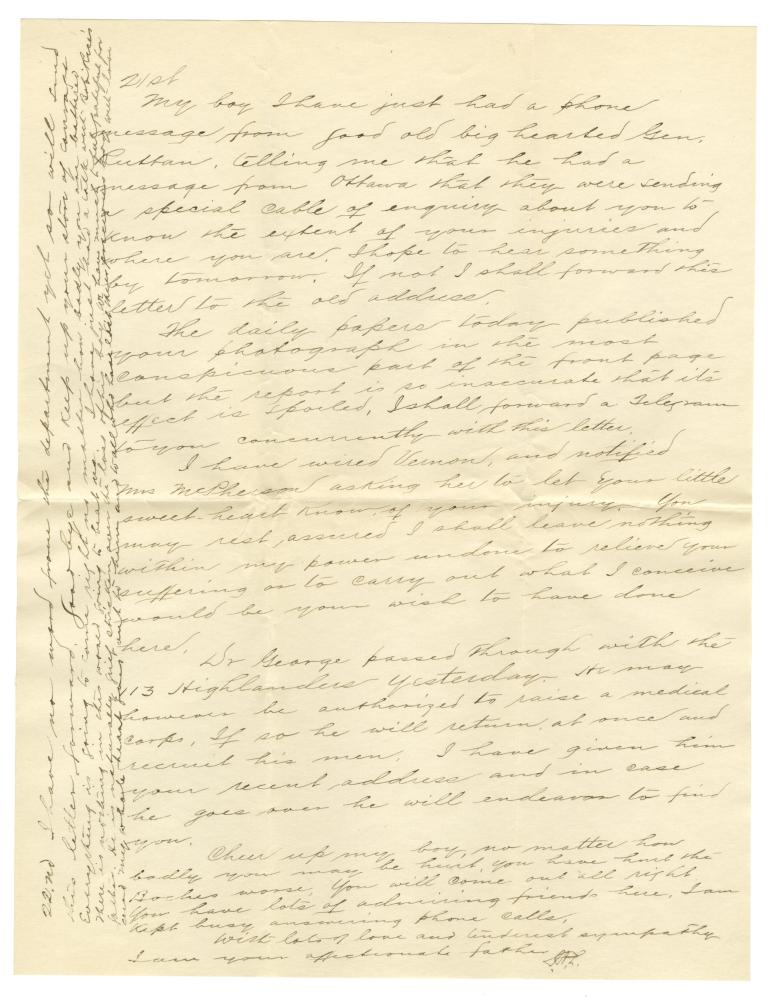 21st
My boy I have just had a phone
message from good old big hearted Gen.
Ruttan, telling me that he had a
message from Ottawa that they were sending
a special cable of enquiry about you to
know the extent of your injuries and
where you are. I hope to hear something
by tomorrow. If not I shall forward this
letter to the old address.
The daily papers today published
your photograph in the most
conspicuous part of the front page
but the report is so inaccurate that its
effect is spoiled, I shall forward a Telegram
to you concurrently with this letter.
I have wired Vernon, and notified
Mrs McPherson asking her to let your little
sweet-heart know of your injury. You
may rest, assured I shall leave nothing
within my power undone to relieve your
suffering or to carry out what I conceive
would be your wish to have done
here.
Dr George passed through with the
113 Highlanders yesterday. He may
however be authorized to raise a medical
corps, If so he will return at once and
recruit his men. I have given him
your recent address and in case
he goes over he will endeavor to find
you.
Cheer up my boy, no matter how
badly you may be hurt, you have hurt the
Boches worse, You will come out all right,
You have lots of admiring friends here, I am
kept busy answering phone calls,
With lots of love and tenderest sympathy
I am your affectionate father
22nd I have no word from the department yet so will send
this letter forward. Good bye and keep up your store of courage
Everything is going to come right no matter how badly you
there is nothing in this world